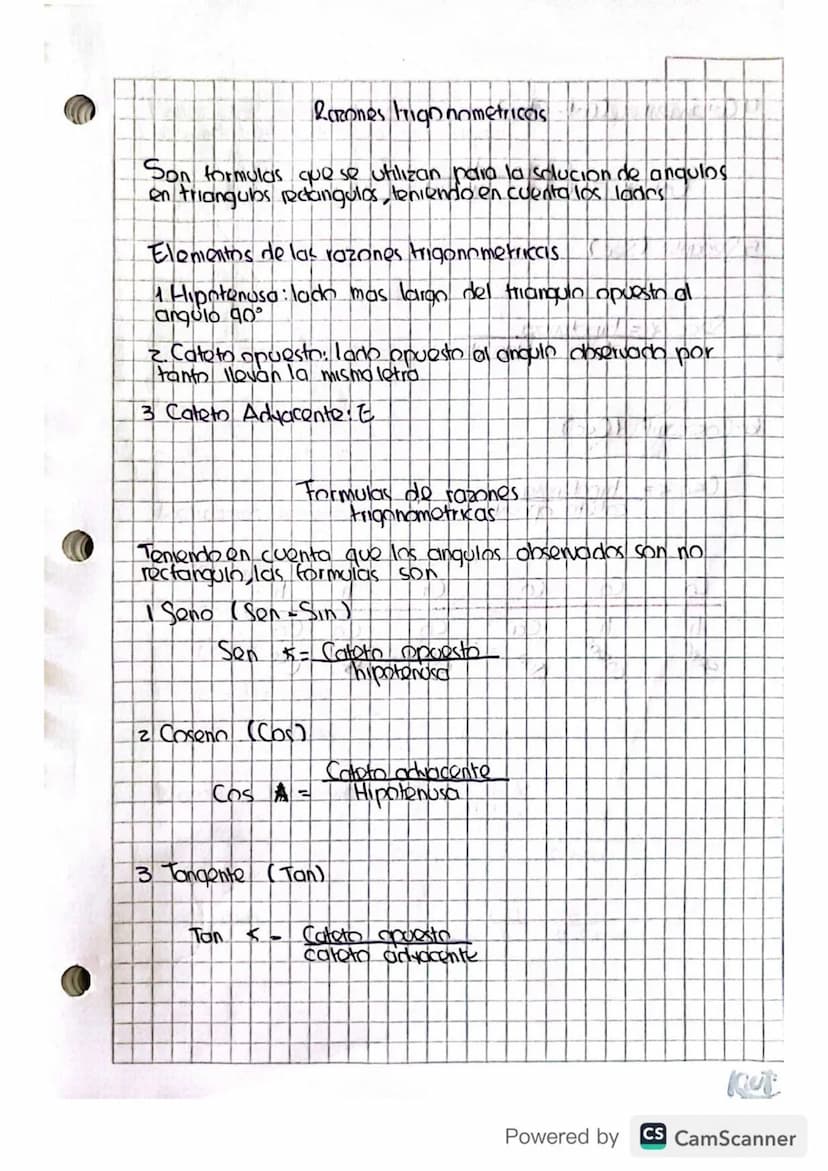 Razones trigonnometricas
Son formulas que se utilizan para la solucion de angulos
en triangulos rectangulos, teniendo en cuenta los lados
Elementos de las razones trigonometriccas
1 Hipotenusa: lado mas largo del triangulo opuesto al
angulo 90°
2. Cateto opuesto: lado opuesto al angulo observado por
tanto llevan la misma letra
3 Cateto Adyacente: E
Formulas de razones
trigonometricas
Teniendo en cuenta que los angulos observados son no
rectangulo, las formulas son
1 Seno (Sen - Sin)
Sen = Cateto opuesto
hipotenusa
2 Coseno (Cos)
Cateto adyacente
Cos A = Hipotenusa
3 Tangente (Tan)
Tan < - Cateto opuesto
cateto adyacente
Powered by CS CamScanner